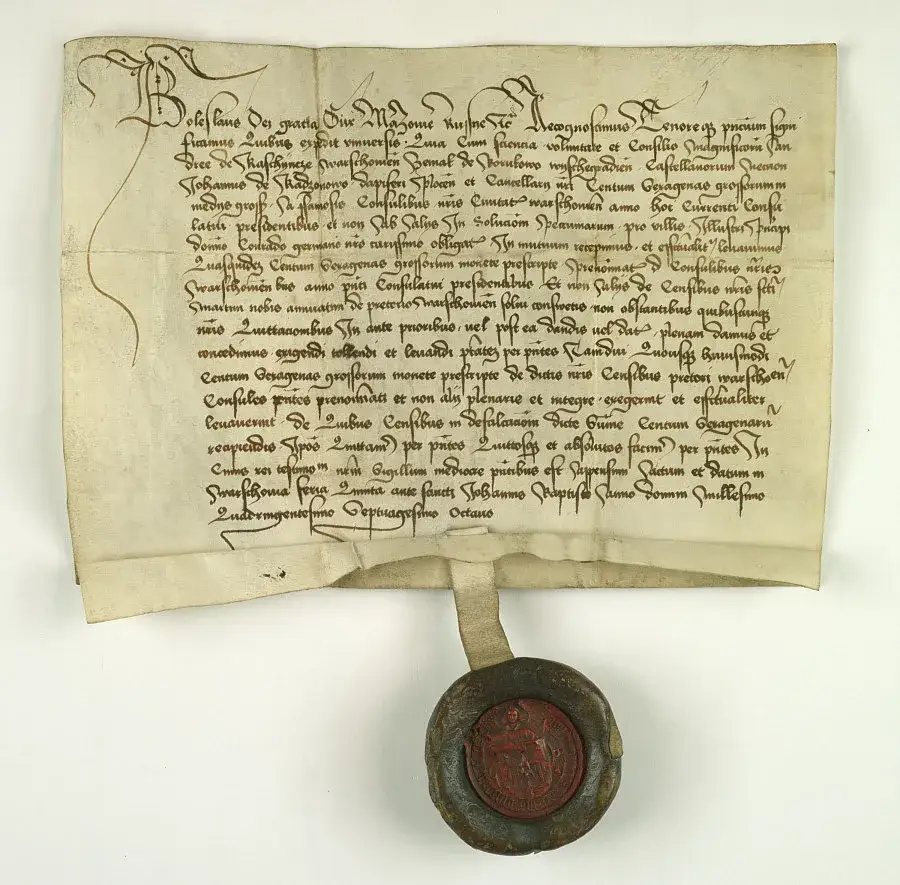 Boleslaus Dei gratia Dux Mazovie Russie etc Recognoscimus Tenoreqz pncium signi
ficamus Quibus expedit vniuersis Quia Cum sciencia voluntate et Consilio Magnificorum An
dree de warschouien de wyschegradien Castellanorum Necnon
Johannis de Radzonowo dapiferi Plocen et Cancellarij nri Centum sexagenas grossorum in
medijs gross A famosis Consulibus nris Ciuitat warschouien anno hoc Currenti Consu
latui presidentibus et non Ab Alijs In Solucionem Peccuniarum pro villis Illustri Principi
domino Conrado germano nro carissimo obligat In mutuum recepimus et effectualit leuauimus
Quasquidem Centum Sexagenas grossorum monete prescripte prenominat Consulibus nris
warschouien anno Consulatui presidentibus Et non Alijs de Censibus nris sti
nobis annuatim de pretorio warschouien solui consuetis non obstantibus quibuscunqz
nris Quittacionibus In ante prioribus vel post ea dandis vel dat plenam damus et
concedimus exigendi tollendi et leuandi ptatem per pntes Tamdiu Quousqz huiusmodi
Centum Sexagenas grossorum monete prescripte de dictis nris Censibus pretorij warschouien
Consules pntes prenominati et non alij plenarie et integre exegerint et effectualiter
leuauerint de Quibus Censibus in defalcacionem dicte Summe Centum Sexagenarum
recipiendis Ipsos Quittamus per pntes Quittosqz et absolutos facimus per pntes In
Cuius rei testimonium nrm Sigillum mediocre pntibus est Appensum Actum et datum in
warschouia feria Quinta ante sancti Johannis Baptiste Anno domini Millesimo
Quadringentesimo Septuagesimo Octauo